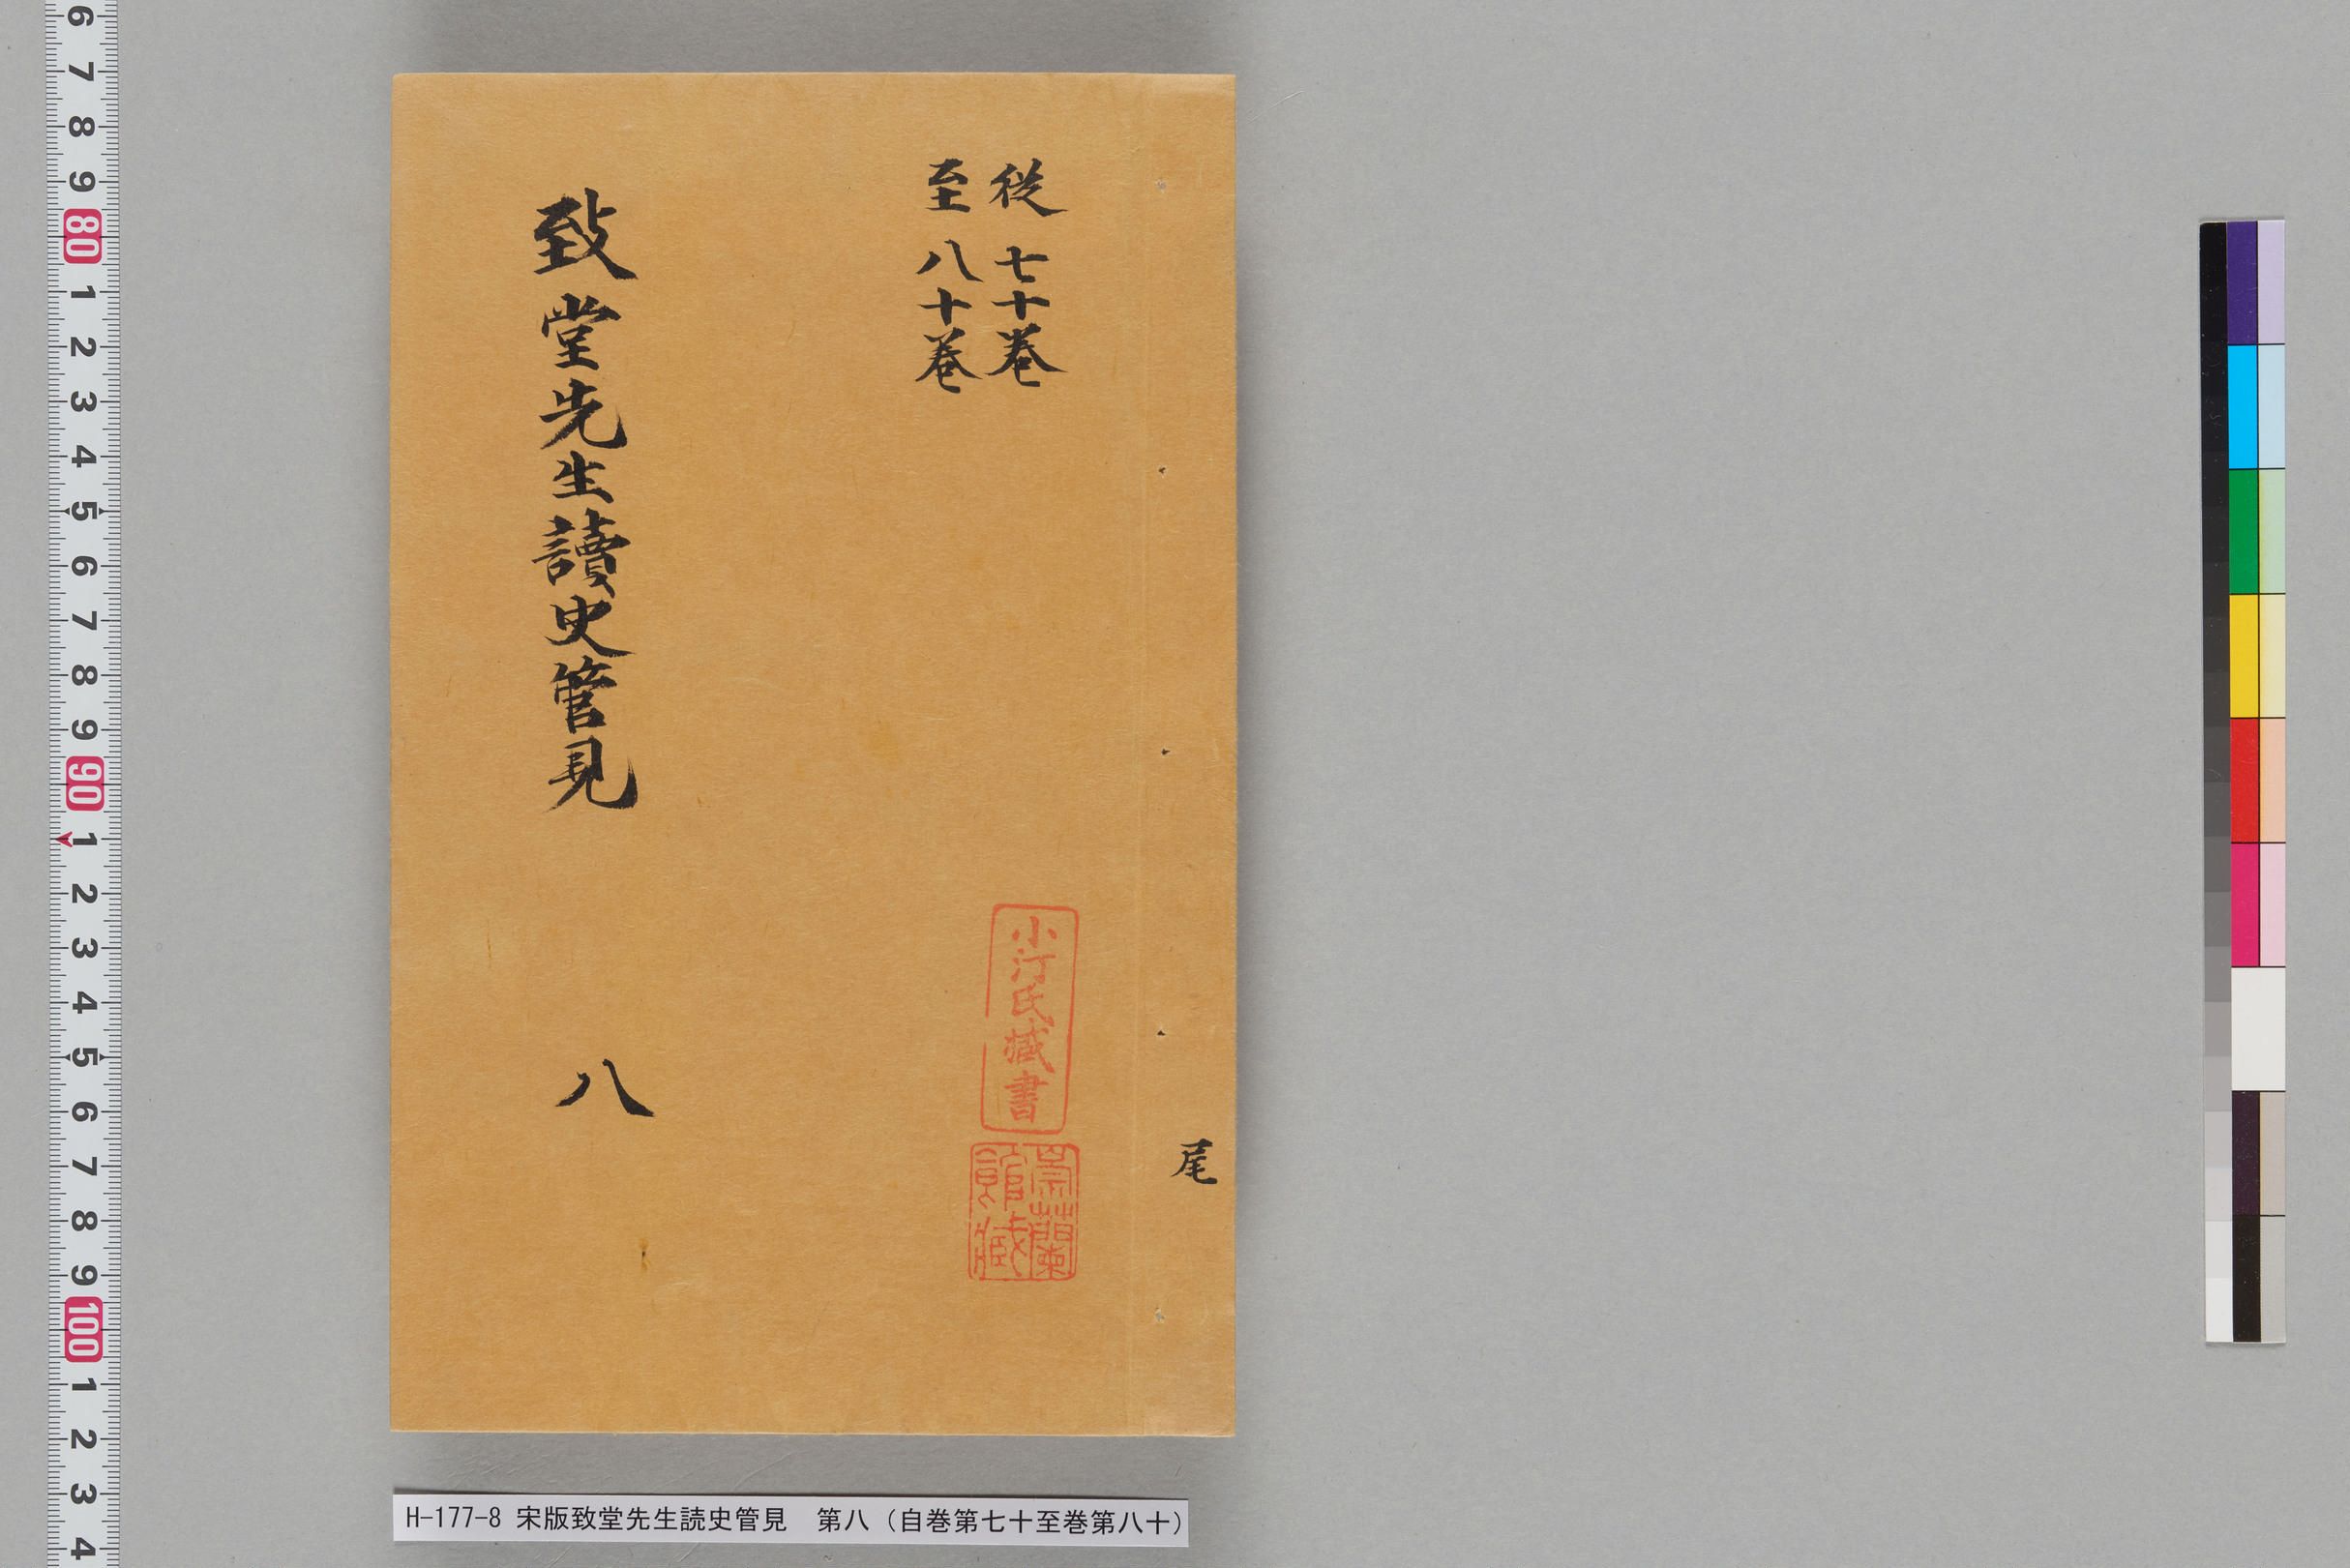 従七十巻
至八十巻
致堂先生讀史管見
八
小汀氏藏書
尾
H-177-8 宋版致堂先生読史管見　第八（自巻第七十至巻第八十）
6 7 8 9 80 1 2 3 4 5 6 7 8 9 90 1 2 3 4 5 6 7 8 9 100 1 2 3 4